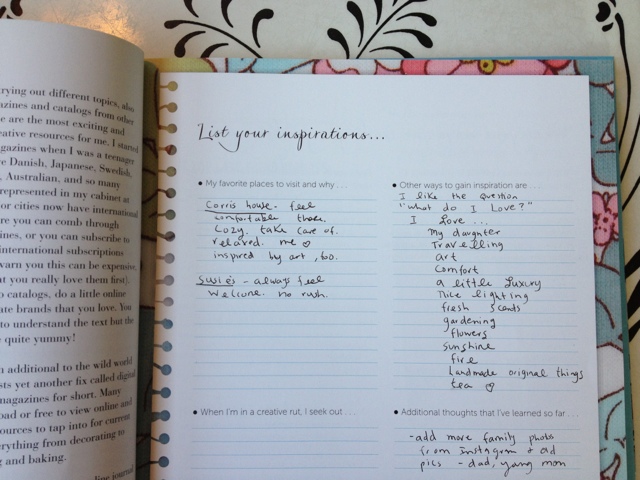 rying out different topics, also
azines and catalogs from other
e are the most exciting and
eative resources for me. I started
agazines when I was a teenager
e Danish, Japanese, Swedish,
Australian, and so many
represented in my cabinet at
or cities now have international
re you can comb through
ines, or you can subscribe to
international subscriptions
warn you this can be expensive,
at you really love them first).
o catalogs, do a little online
ate brands that you love. You
to understand the text but the
quite yummy!
n additional to the wild world
sts yet another fix called digital
magazines for short. Many
oad or free to view online and
ources to tap into for current
erything from decorating to
g and baking.
online journal
List your inspirations...
• My favorite places to visit and why . . .
Corris house - feel
comfortable there.
Cozy. take care of.
relaxed. me ♡
inspired by art, too.
Susie's - always feel
welcome. no rush.
• When I'm in a creative rut, I seek out . . . .
• Other ways to gain inspiration are . . . .
I like the question
"What do I Love?"
I Love ...
My daughter
Travelling
art
Comfort
a little Luxury
Nice lighting
fresh scents
gardening
flowers
sunshine
fire
handmade original things
tea ♡
• Additional thoughts that I've learned so far . . .
-add more family photos
from Instagram + old
pics - dad, young mom